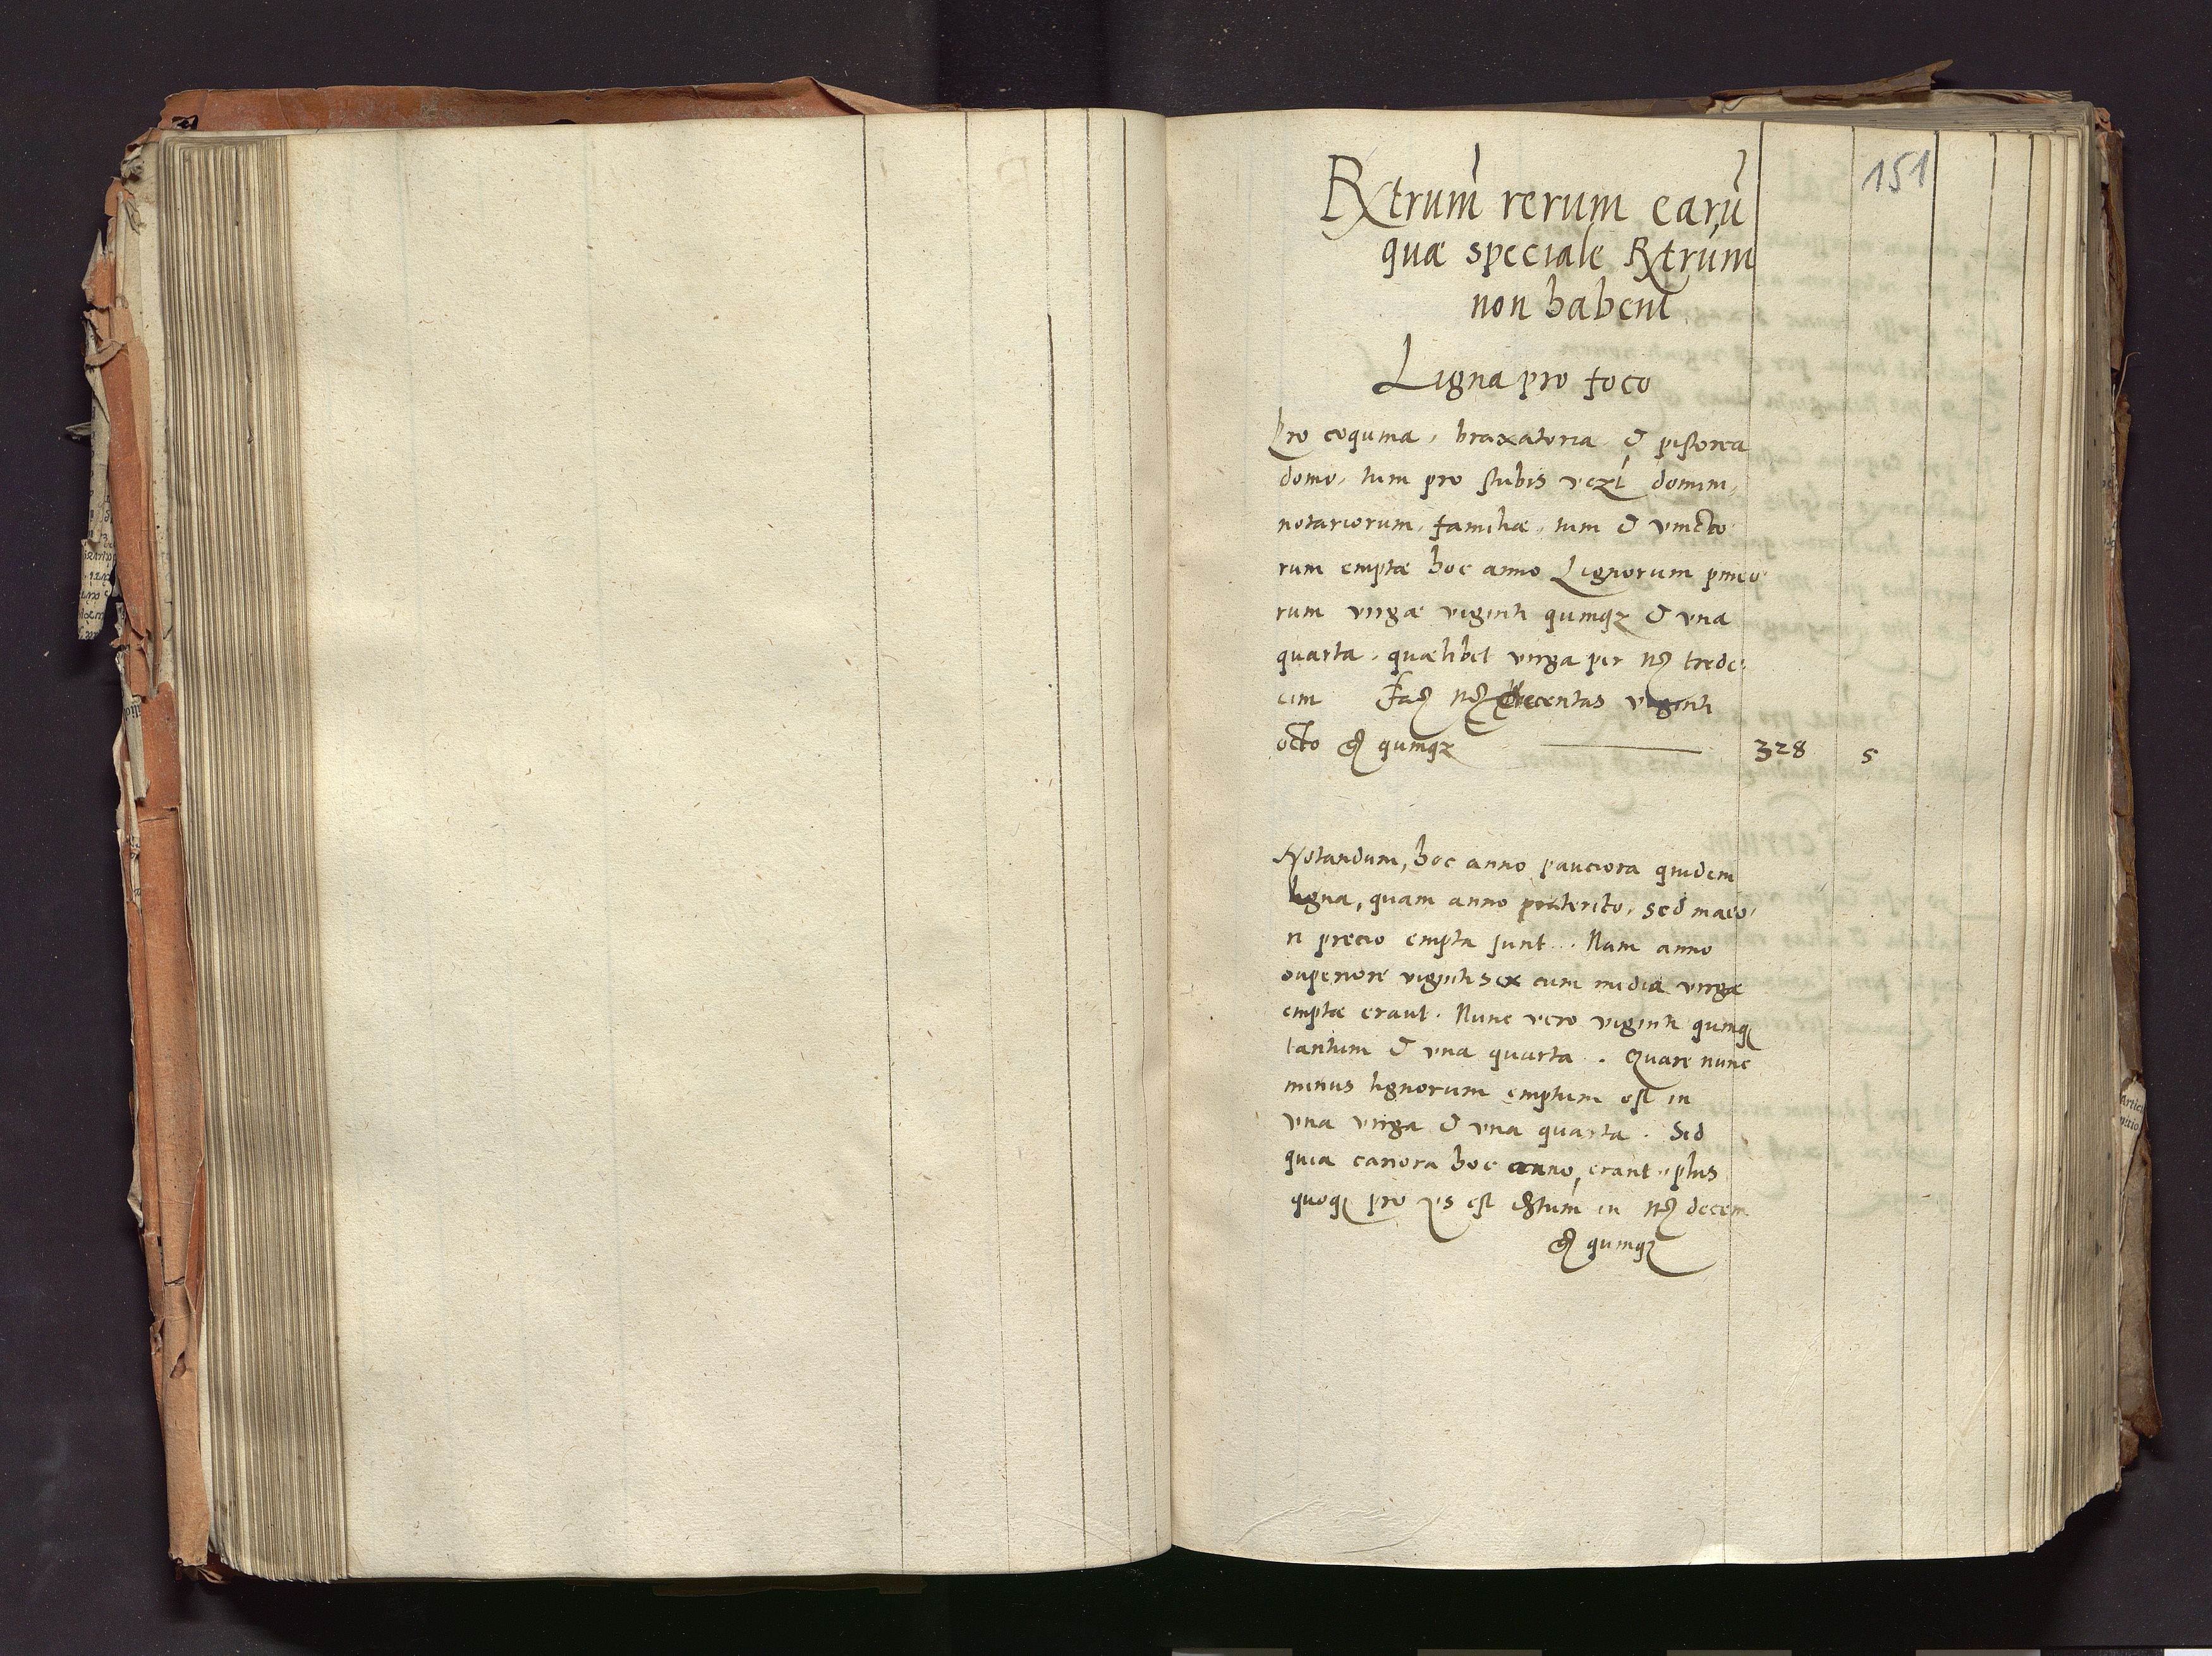 151
Rxtrum rerum earū
quæ speciale Rxtrum
non habent
Ligna pro foco
Pro coquina, braxatoria & pistorea
domo, tum pro stubis domin,
notariorum, familiæ, tum & vincto
rum emptæ hoc anno Lignorum pineo
rum virgæ viginti quinqz & vna
quarta, quælibet virga per trede,
cim viginti
octo quinqz 328 5
Notandum, hoc anno pauciora quidem
ligna, quam anno præterito, sed maio,
ri precio empta sunt. Nam anno
superiore viginti sex cum media virgæ
emptæ erant. Nunc vero viginti quinqz
tantum & vna quarta. Quare nunc
minus lignorum emptum est in
vna virga & vna quarta. Sed
quia cariora hoc anno, erant, plus
quoqz pro ijs est in decem
quinqz